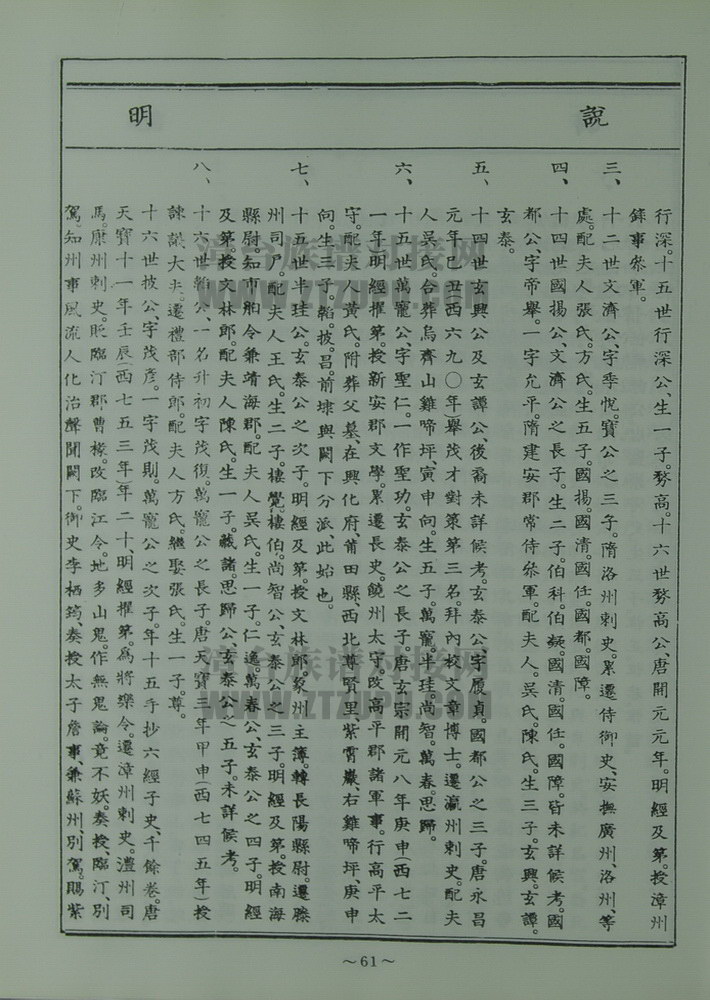 說明
行深。十五世行深公、生一子。務高。十六世務高公唐開元元年。明經及第。授漳州
錄事叅軍。
三、十二世文濟公、字季悅。寶公之三子。隋洛州刺史。累遷侍御史、安撫廣州、洛州、等
處。配夫人張氏。方氏。生五子。國揚。國清。國任。國都。國障。
四、十四世國揚公、文濟公之長子。生二子。伯科。伯凝。國清。國任。國障。皆未詳候考。國
都公、字帝舉。一字允平。隋建安郡常侍叅軍。配夫人。吳氏。陳氏。生三子。玄興。玄譚。
玄泰。
五、十四世玄興公及玄譚公、後裔未詳候考。玄泰公字履貞。國都公之三子。唐永昌
元年己丑西六九〇年)舉茂才對策第三名。拜內校文章博士。遷瀛州刺史。配夫
人吳氏。合葬烏齊山雞啼坪、寅申向。生五子。萬寵。半珪。尚智。萬春。思歸。
六、十五世萬寵公、字聖仁。一作聖功。玄泰公之長子。唐玄宗開元八年庚申(西七二
一年明經擢第。授新安郡文學。累遷長史。饒州太守。改高平郡諸軍事。行高平太
守。配夫人黃氏。附葬父墓、在興化府、莆田縣、西北尊賢里、紫霄巖、右雞啼坪、庚申
向。生三子。韜。披。昌。前埭與闕下分派、此始也。
七、十五世半珪公。玄泰公之次子。明經及第。授文林郎。象州主簿。轉長陽縣尉。遷滕
州司戶。配夫人王氏。生二子。樓覺。樓伯。尚智公、玄泰公之三子。明經及第。授南海
縣尉。知市舶令兼靖海郡。配夫人吳氏。生一子。仁逸。萬春公、玄泰公之四子。明經
及第。授文林郎。配夫人陳氏。生一子。藏諸。思歸公、玄泰公之五子。未詳候考。
八、十六世韜公、一名升初字茂復。萬寵公之長子。唐天寶三年甲申(西七四五年)授
諫議大夫。遷禮部侍郎。配夫人方氏。繼娶張氏。生一子。尊。
十六世披公、字茂彥。一字茂則。萬寵公之次子。年十五手抄六經子史、千餘卷。唐
天寶十一年壬辰(西七五三年)年二十、明經擢第。為將樂令。遷漳州刺史。澧州司
馬。康州刺史。貶臨汀郡曹椽。改臨江令。地多山鬼。作無鬼論。竟不妖。奏授、臨汀、別
駕、知州事。風流人化治聲聞闕下。御史李栖筠、奏授太子詹事、兼蘇州、別駕。賜紫
～61～
漳台族谱对接网
WWW.ZTZUPU.COM
漳台族谱对接网
WWW.ZTZUPU.COM